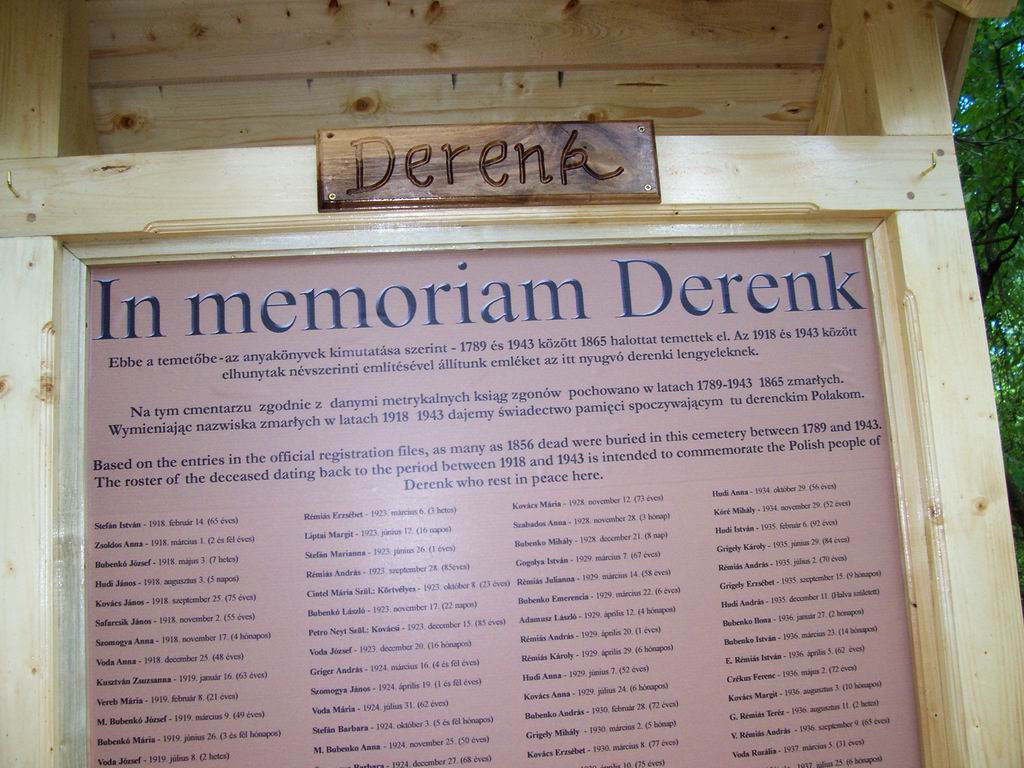 Derenk
In memoriam Derenk
Ebbe a temetőbe - az anyakönyvek kimutatása szerint - 1789 és 1943 között 1865 halottat temettek el. Az 1918 és 1943 között
elhunytak névszerinti említésével állítunk emléket az itt nyugvó derenki lengyeleknek.
Na tym cmentarzu zgodnie z danymi metrykalnych ksiąg zgonów pochowano w latach 1789-1943 1865 zmarłych.
Wymieniając nazwiska zmarłych w latach 1918 1943 dajemy świadectwo pamięci spoczywającym tu derenckim Polakom.
Based on the entries in the official registration files, as many as 1856 dead were buried in this cemetery between 1789 and 1943.
The roster of the deceased dating back to the period between 1918 and 1943 is intended to commemorate the Polish people of
Derenk who rest in peace here.
Stefán István - 1918. február 14. (65 éves)
Zsoldos Anna - 1918. március 1. (2 és fél éves)
Bubenkó József - 1918. május 3. (7 hetes)
Hudi János - 1918. augusztus 3. (5 napos)
Kovács János - 1918. szeptember 25. (75 éves)
Safarcsik János - 1918. november 2. (55 éves)
Szomogya Anna - 1918. november 17. (4 hónapos)
Voda Anna - 1918. december 25. (48 éves)
Kusztván Zsuzsanna - 1919. január 16. (63 éves)
Vereb Mária - 1919. február 8. (21 éves)
M. Bubenkó József - 1919. március 9. (49 éves)
Bubenkó Mária - 1919. június 26. (3 és fél hónapos)
Voda József - 1919. július 8. (2 hetes)
Rémiás Erzsébet - 1923. március 6. (3 hetes)
Liptai Margit - 1923. június 12. (16 napos)
Stefán Marianna - 1923. június 26. (1 éves)
Rémiás András - 1923. szeptember 28. (85éves)
Cintel Mária Szül.: Körtvélyes - 1923. október 8. (23 éves)
Bubenkó László - 1923. november 17. (22 napos)
Petro Neyt Szül.: Kovácsi - 1923. december 15. (85 éves)
Voda József - 1923. december 20. (16 hónapos)
Griger András - 1924. március 16. (4 és fél éves)
Szomogya János - 1924. április 19. (1 és fél éves)
Voda Mária - 1924. július 31. (62 éves)
Stefán Barbara - 1924. október 3. (5 és fél hónapos)
M. Bubenko Anna - 1924. november 25. (50 éves)
Barbara - 1924. december 27. (68 éves)
Kovács Mária - 1928. november 12. (73 éves)
Szabados Anna - 1928. november 28. (3 hónap)
Bubenko Mihály - 1928. december 21. (8 nap)
Gogolya István - 1929. március 7. (67 éves)
Rémiás Julianna - 1929. március 14. (58 éves)
Bubenko Emerencia - 1929. március 22. (6 éves)
Adamusz László - 1929. április 12. (4 hónapos)
Rémiás András - 1929. április 20. (1 éves)
Rémiás Károly - 1929. április 29. (6 hónapos)
Hudi Anna - 1929. június 7. (52 éves)
Kovács Anna - 1929. július 24. (6 hónapos)
Bubenko András - 1930. február 28. (72 éves)
Grigely Mihály - 1930. március 2. (5 hónap)
Kovács Erzsébet - 1930. március 8. (77 éves)
10. (75 éves)
Hudi Anna - 1934. október 29. (56 éves)
Kóré Mihály - 1934. november 29. (52 éves)
Hudi István - 1935. február 6. (92 éves)
Grigely Károly - 1935. június 29. (84 éves)
Rémiás András - 1935. július 2. (70 éves)
Grigely Erzsébet - 1935. szeptember 15. (9 hónapos)
Hudi András - 1935. december 11. (Halva született)
Bubenko Ilona - 1936. január 27. (2 hónapos)
Bubenko István - 1936. március 23. (14 hónapos)
E. Rémiás István - 1936. április 5. (62 éves)
Czékus Ferenc - 1936. május 2. (72 éves)
Kovács Margit - 1936. augusztus 3. (10 hónapos)
G. Rémiás Teréz - 1936. augusztus 11. (2 hetes)
V. Rémiás András - 1936. szeptember 9. (65 éves)
Voda Rozália - 1937. március 5. (31 éves)
1937. július 25. (6 hónapos)